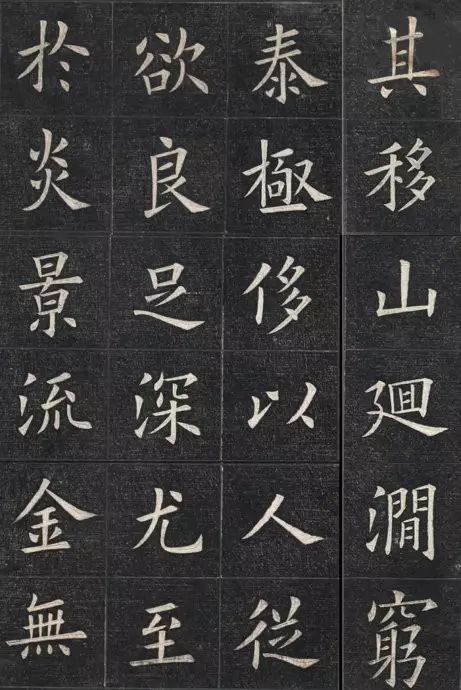 其移山廻澗窮
泰極侈以人從
欲良足深尤至
於炎景流金無